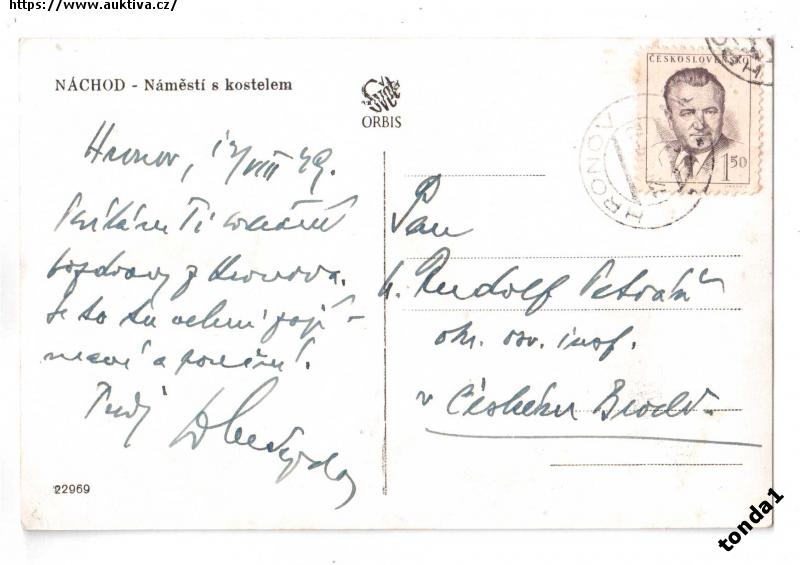 https://www.auktiva.cz/
NÁCHOD - Náměstí s kostelem
Svět
ORBIS
ČESKOSLOVENSKO
1 50
HRONOV
Hronov, 12/VIII 49.
Posílám Ti srdečné
pozdravy z Hronova.
Je to tu velmi zají-
mavé a poučné.
Tvůj
Pan
Rudolf Petrák
okr. osv. insp.
v Českém Brodě.
22969
tonda1